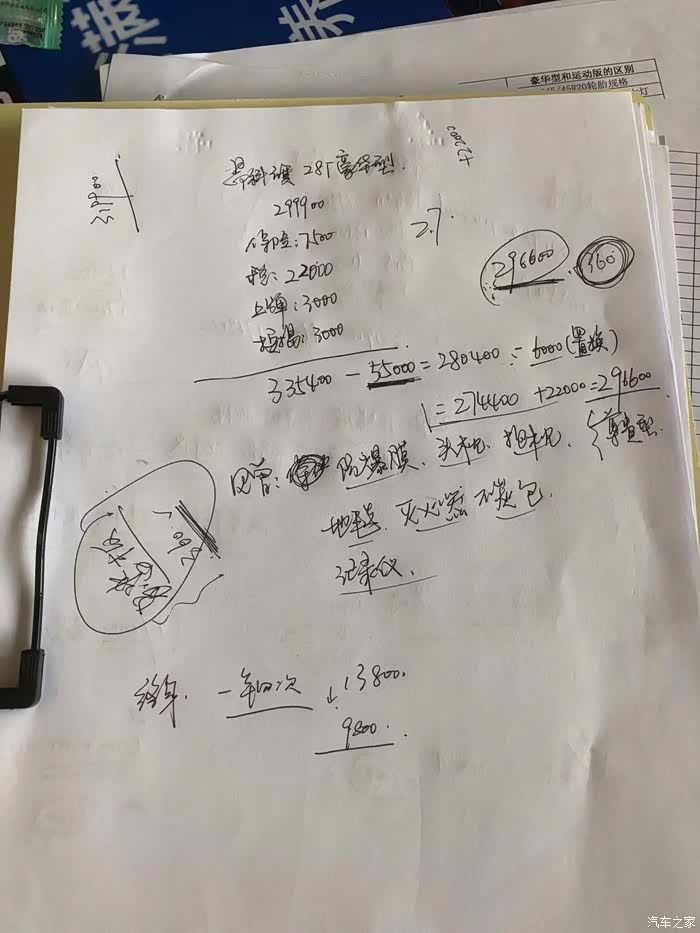 豪华型和运动版的区别
45R20轮胎规格
灯
+22000
319900
昂科旗 28T豪华型.
299900
保险:7500
税:22000
上牌:3000
按揭:3000
2.7.
296600. 360
335400 - 55000 = 280400 - 6000(置换)
= 274400 +22000=296600
尊贵型.
回管: 防爆膜、头枕、抱枕、
地毯 灭火器 炭包
记录仪.
终身. 一年四次 13800.
↓
9800.
汽车之家